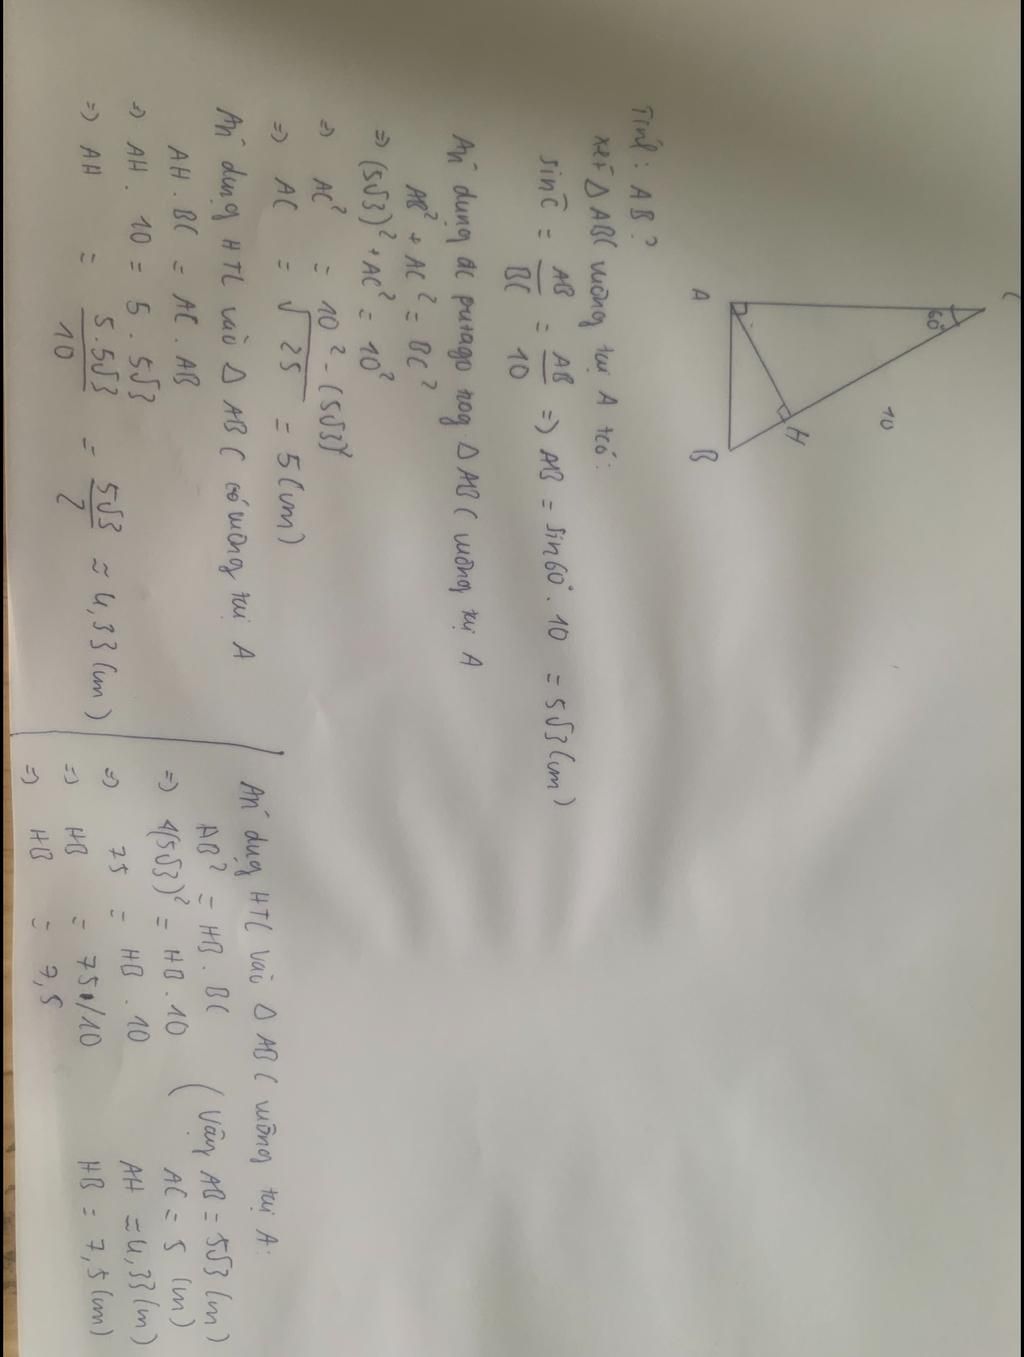 C
60°
10
A
H
B
Tính: AB?
xét Δ ABC vuông tại A tcó:
sin C = AB/BC = AB/10 => AB = sin60° . 10 = 5√3 (cm)
dụng đl pytago Δ ABC vuông tại A
AB² + AC² = BC²
=> (5√3)² + AC² = 10²
=> AC² = 10² - (5√3)²
=> AC = √25 = 5 (cm)
dụng HTL vào Δ ABC có vuông tại A
AH . BC = AC . AB
=> AH . 10 = 5 . 5√3
=> AH = 5.5√3/10 = 5√3/2 ≈ 4,33 (cm)
dụng HTL vào Δ ABC vuông tại A:
AB² = HB . BC
=> (5√3)² = HB . 10
=> 75 = HB . 10
=> HB = 75/10
=> HB = 7,5
(Vậy AB = 5√3 (cm)
AC = 5 (cm)
AH ≈ 4,33 (cm)
HB = 7,5 (cm)